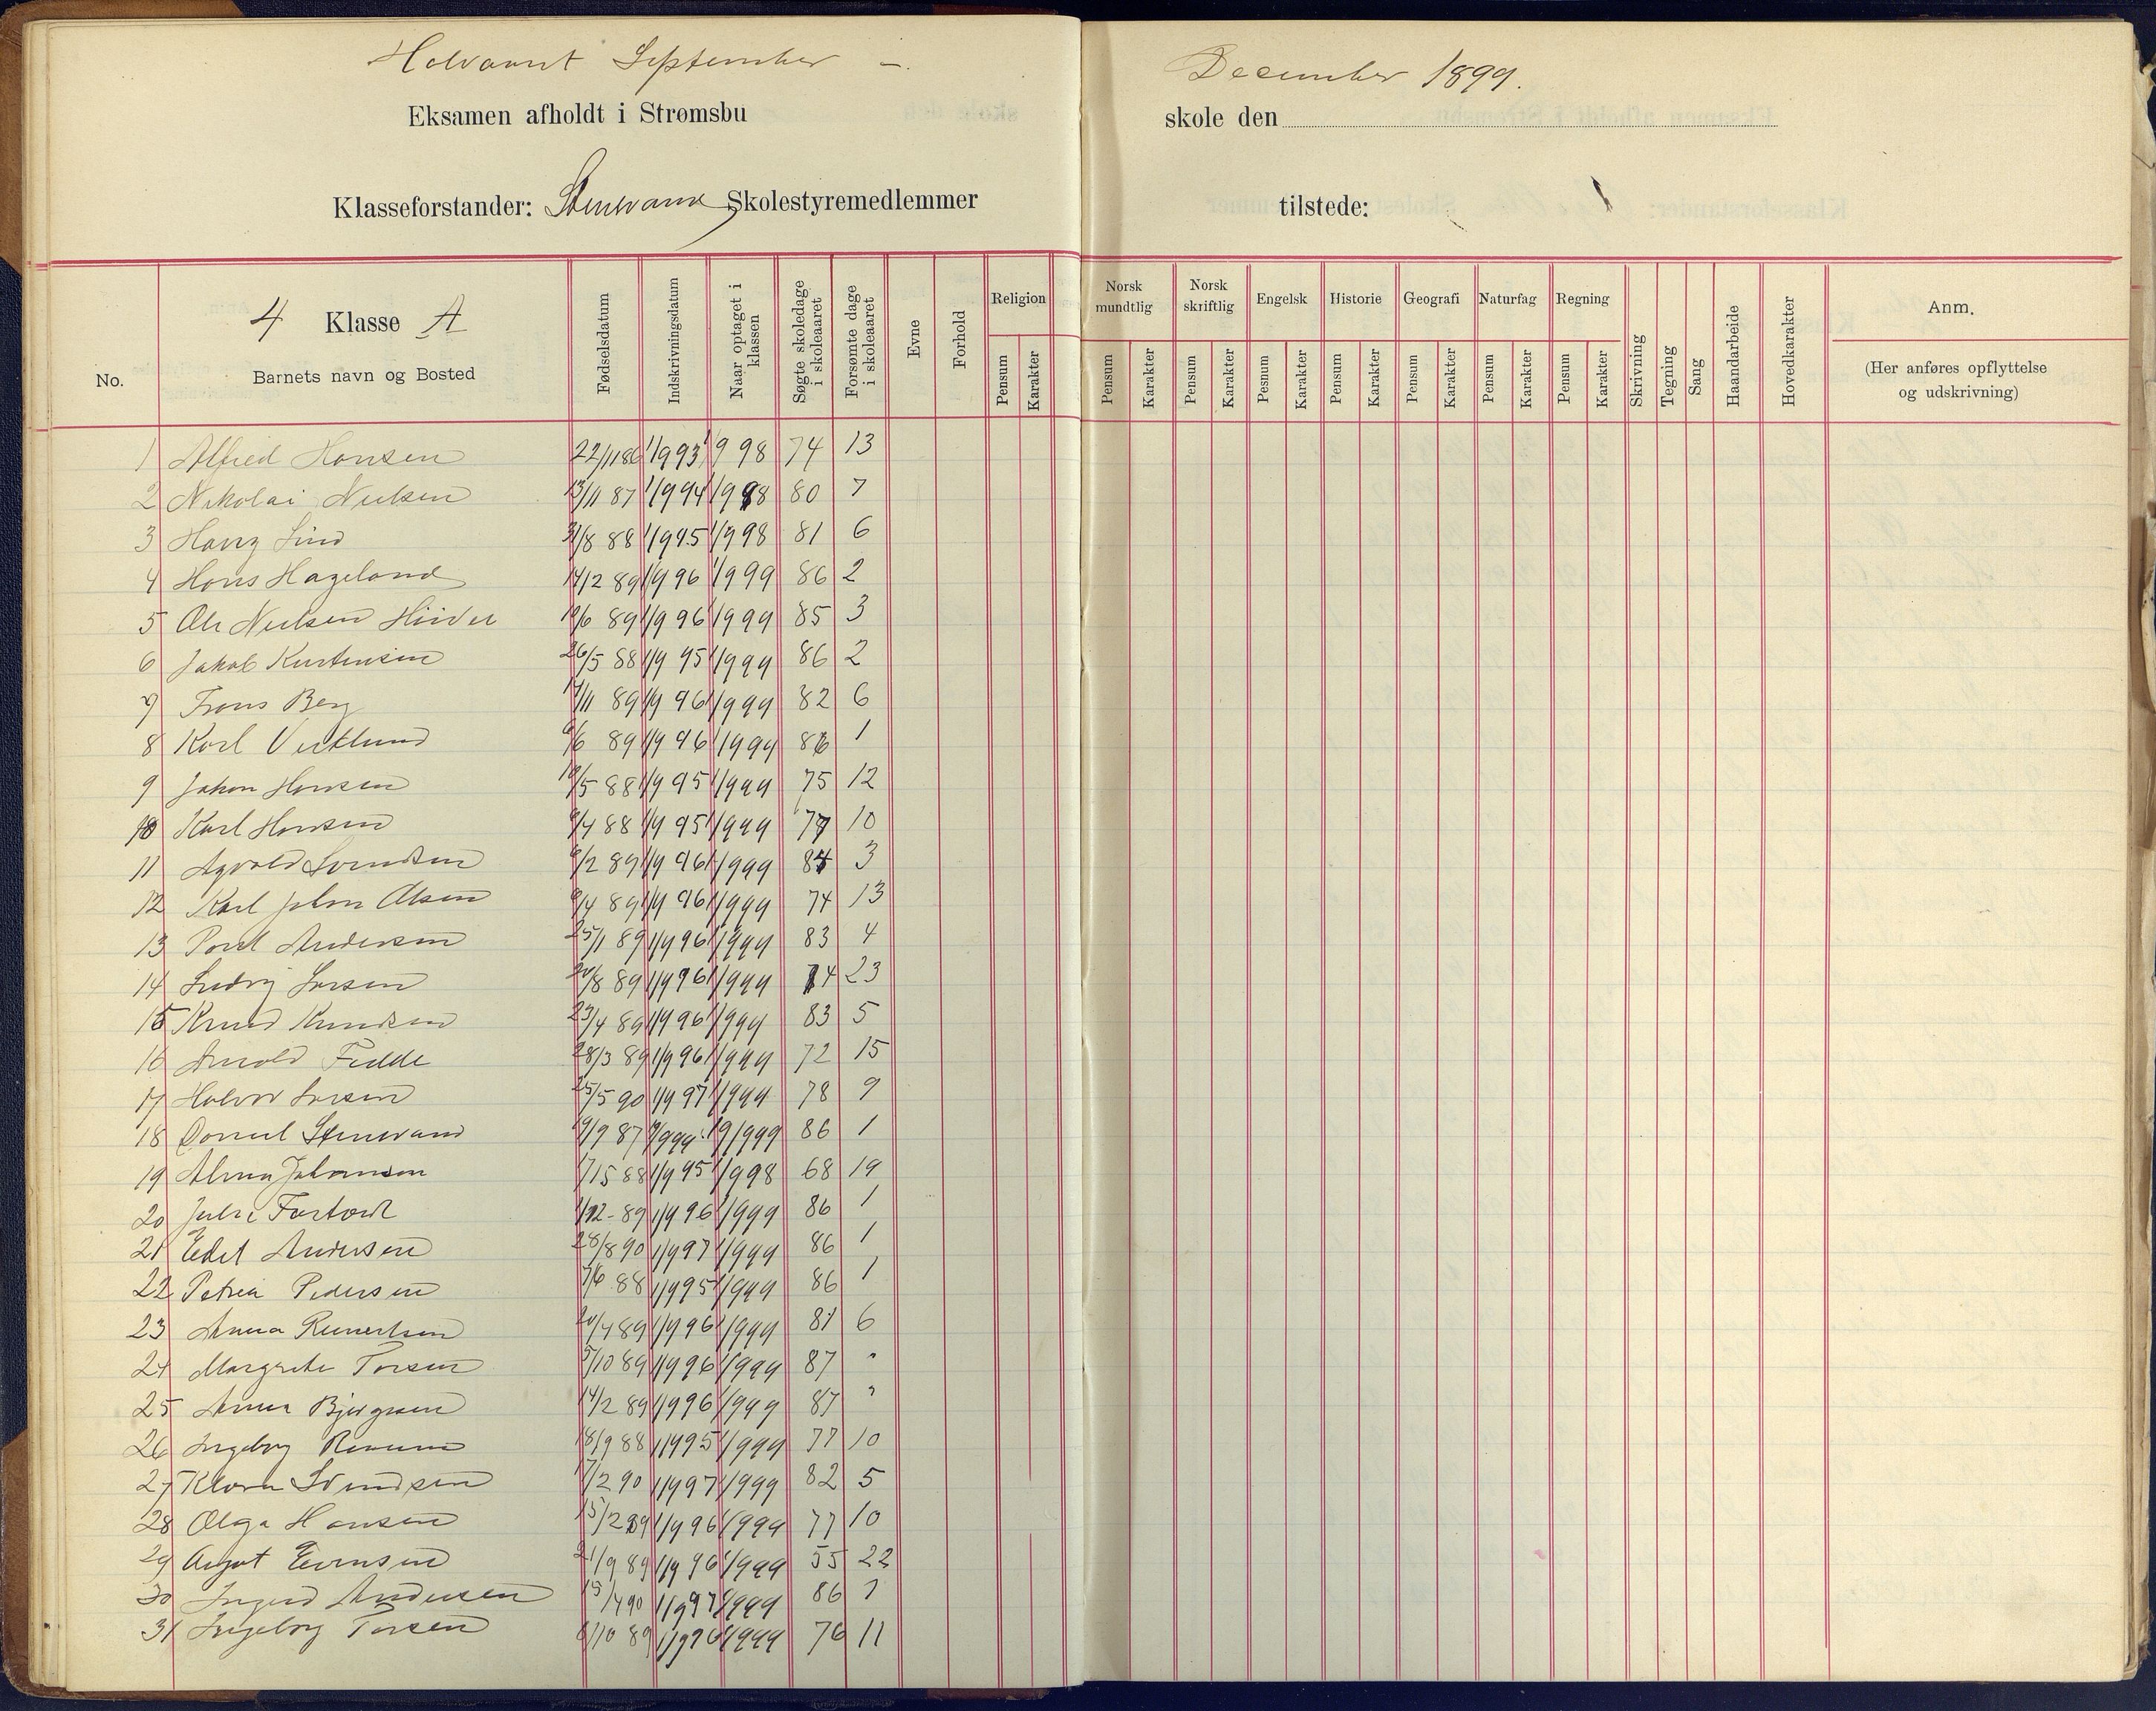 Halvaaret September – December 1899.
Eksamen afholdt i Strømsbu skole den
Klasseforstander: Stenevand Skolestyremedlemmer tilstede:
No. 4 Klasse A Barnets navn og Bosted Fødselsdatum Indskrivningsdatum Naar optaget i klassen Søgte skoledage i skoleaaret Forsømte dage i skoleaaret Evne Forhold Religion Norsk mundtlig Norsk skriftlig Engelsk Historie Geografi Naturfag Regning Skrivning Tegning Sang Haandarbeide Hovedkarakter Anm.
Pensum Karakter Pensum Karakter Pensum Karakter Pesnum Karakter Pensum Karakter Pensum Karakter Pensum Karakter Pensum Karakter (Her anføres opflyttelse og udskrivning)
1 Alfred Hansen 22/11 86 1/9 93 1/9 98 74 13
2 Nikolai Nielsen 13/11 87 1/9 94 1/9 98 80 7
3 Harry Lind 31/8 88 1/9 95 1/9 98 81 6
4 Hans Hageland 14/2 89 1/9 96 1/9 99 86 2
5 Ole Nielsen 10/6 89 1/9 96 1/9 99 85 3
6 Jakob Kristensen 26/5 88 1/9 95 1/9 99 86 2
7 Frans Berg 14/11 89 1/9 96 1/9 99 82 6
8 Karl Vicklund 6/6 89 1/9 96 1/9 99 86 1
9 Johan Hansen 10/5 88 1/9 95 1/9 99 75 12
10 Karl Hansen 6/4 88 1/9 95 1/9 99 77 10
11 Agvald Svendsen 6/2 89 1/9 96 1/9 99 84 3
12 Karl Johan Olsen 9/4 89 1/9 96 1/9 99 74 13
13 Poul Andersen 25/1 89 1/9 96 1/9 99 83 4
14 Ludvig Larsen 20/8 89 1/9 96 1/9 99 74 23
15 Knud Knudsen 23/4 89 1/9 96 1/9 99 83 5
16 Arnold Fedde 28/3 89 1/9 96 1/9 99 72 15
17 Halvor Larsen 25/5 90 1/9 97 1/9 99 78 9
18 Daniel Stenevand 19/9 87 9/9 99 19/9 99 86 1
19 Alma Johansen 17/5 88 1/9 95 1/9 98 68 19
20 Julie 1/12 - 89 1/9 96 1/9 99 86 1
21 Edel Andersen 28/8 90 1/9 97 1/9 99 86 1
22 Petrea Pedersen 7/6 88 1/9 95 1/9 99 86 1
23 Anna Reinertsen 20/4 89 1/9 96 1/9 99 81 6
24 Margrete Torsen 5/10 89 1/9 96 1/9 99 87 "
25 Anna Bjørgsen 14/2 89 1/9 96 1/9 99 87 "
26 Ingeborg 18/9 88 1/9 95 1/9 99 77 10
27 Klara Svendsen 17/2 90 1/9 97 1/9 99 82 5
28 Olga Hansen 15/2 89 1/9 96 1/9 99 77 10
29 Evensen 21/9 89 1/9 96 1/9 99 55 22
30 Ingrid Andersen 15/4 90 1/9 97 1/9 99 86 1
31 Ingeborg Torsen 8/10 89 1/9 96 1/9 99 76 11